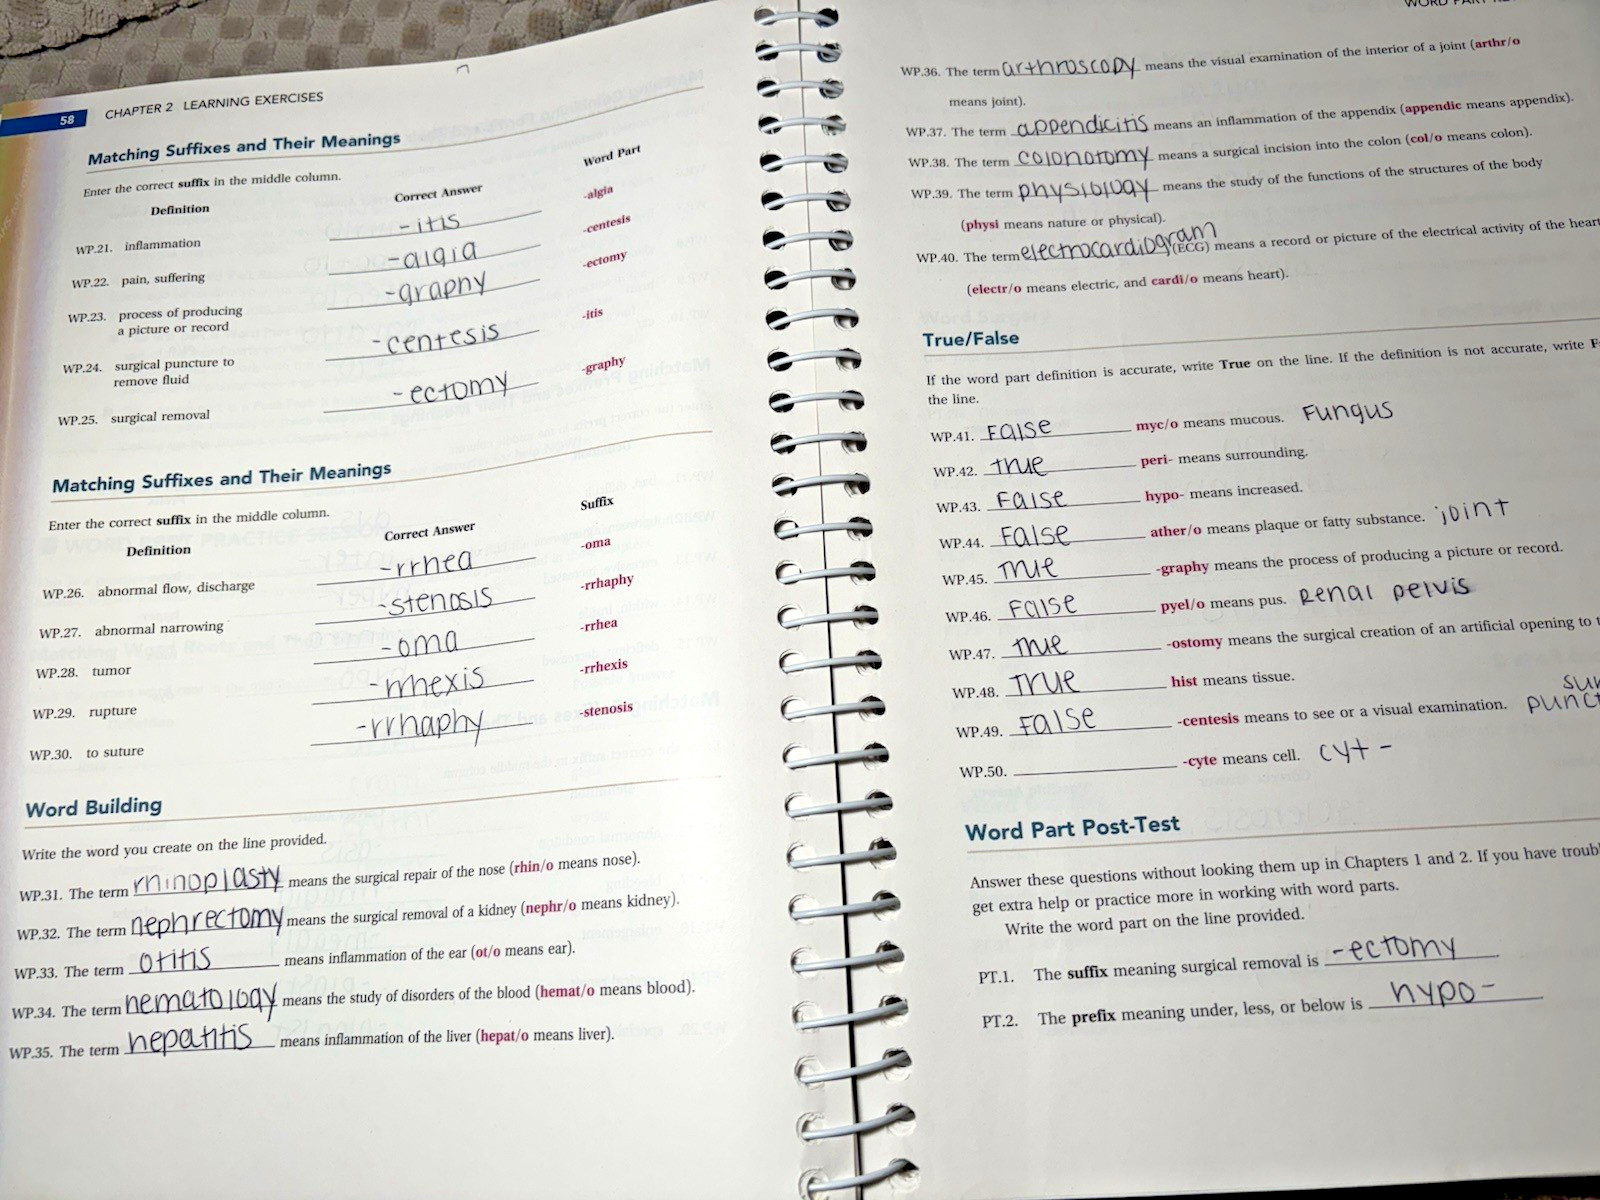 58 CHAPTER 2 LEARNING EXERCISES
Matching Suffixes and Their Meanings
Enter the correct suffix in the middle column.
Definition Correct Answer Word Part
WP.21. inflammation -itis -algia
WP.22. pain, suffering -algia -centesis
WP.23. process of producing -graphy -ectomy
a picture or record
WP.24. surgical puncture to -centesis -itis
remove fluid
WP.25. surgical removal -ectomy -graphy
Matching Suffixes and Their Meanings
Enter the correct suffix in the middle column.
Definition Correct Answer Suffix
WP.26. abnormal flow, discharge -rrhea -oma
WP.27. abnormal narrowing -stenosis -rrhaphy
WP.28. tumor -oma -rrhea
WP.29. rupture -rrhexis -rrhexis
WP.30. to suture -rrhaphy -stenosis
Word Building
Write the word you create on the line provided.
WP.31. The term rhinoplasty means the surgical repair of the nose (rhin/o means nose).
WP.32. The term nephrectomy means the surgical removal of a kidney (nephr/o means kidney).
WP.33. The term otitis means inflammation of the ear (ot/o means ear).
WP.34. The term hematology means the study of disorders of the blood (hemat/o means blood).
WP.35. The term hepatitis means inflammation of the liver (hepat/o means liver).
WORD PART
WP.36. The term arthroscopy means the visual examination of the interior of a joint (arthr/o
means joint).
WP.37. The term appendicitis means an inflammation of the appendix (appendic means appendix).
WP.38. The term colonotomy means a surgical incision into the colon (col/o means colon).
WP.39. The term physiology means the study of the functions of the structures of the body
(physi means nature or physical).
WP.40. The term electrocardiogram (ECG) means a record or picture of the electrical activity of the heart
(electr/o means electric, and cardi/o means heart).
True/False
If the word part definition is accurate, write True on the line. If the definition is not accurate, write
the line.
WP.41. False myc/o means mucous. Fungus
WP.42. True peri- means surrounding.
WP.43. False hypo- means increased.
WP.44. False ather/o means plaque or fatty substance. joint
WP.45. True -graphy means the process of producing a picture or record.
WP.46. False pyel/o means pus. Renal pelvis
WP.47. True -ostomy means the surgical creation of an artificial opening to
WP.48. True hist means tissue.
WP.49. False -centesis means to see or a visual examination.
WP.50. -cyte means cell. cyt-
Word Part Post-Test
Answer these questions without looking them up in Chapters 1 and 2. If you have
get extra help or practice more in working with word parts.
Write the word part on the line provided.
PT.1. The suffix meaning surgical removal is -ectomy
PT.2. The prefix meaning under, less, or below is hypo-